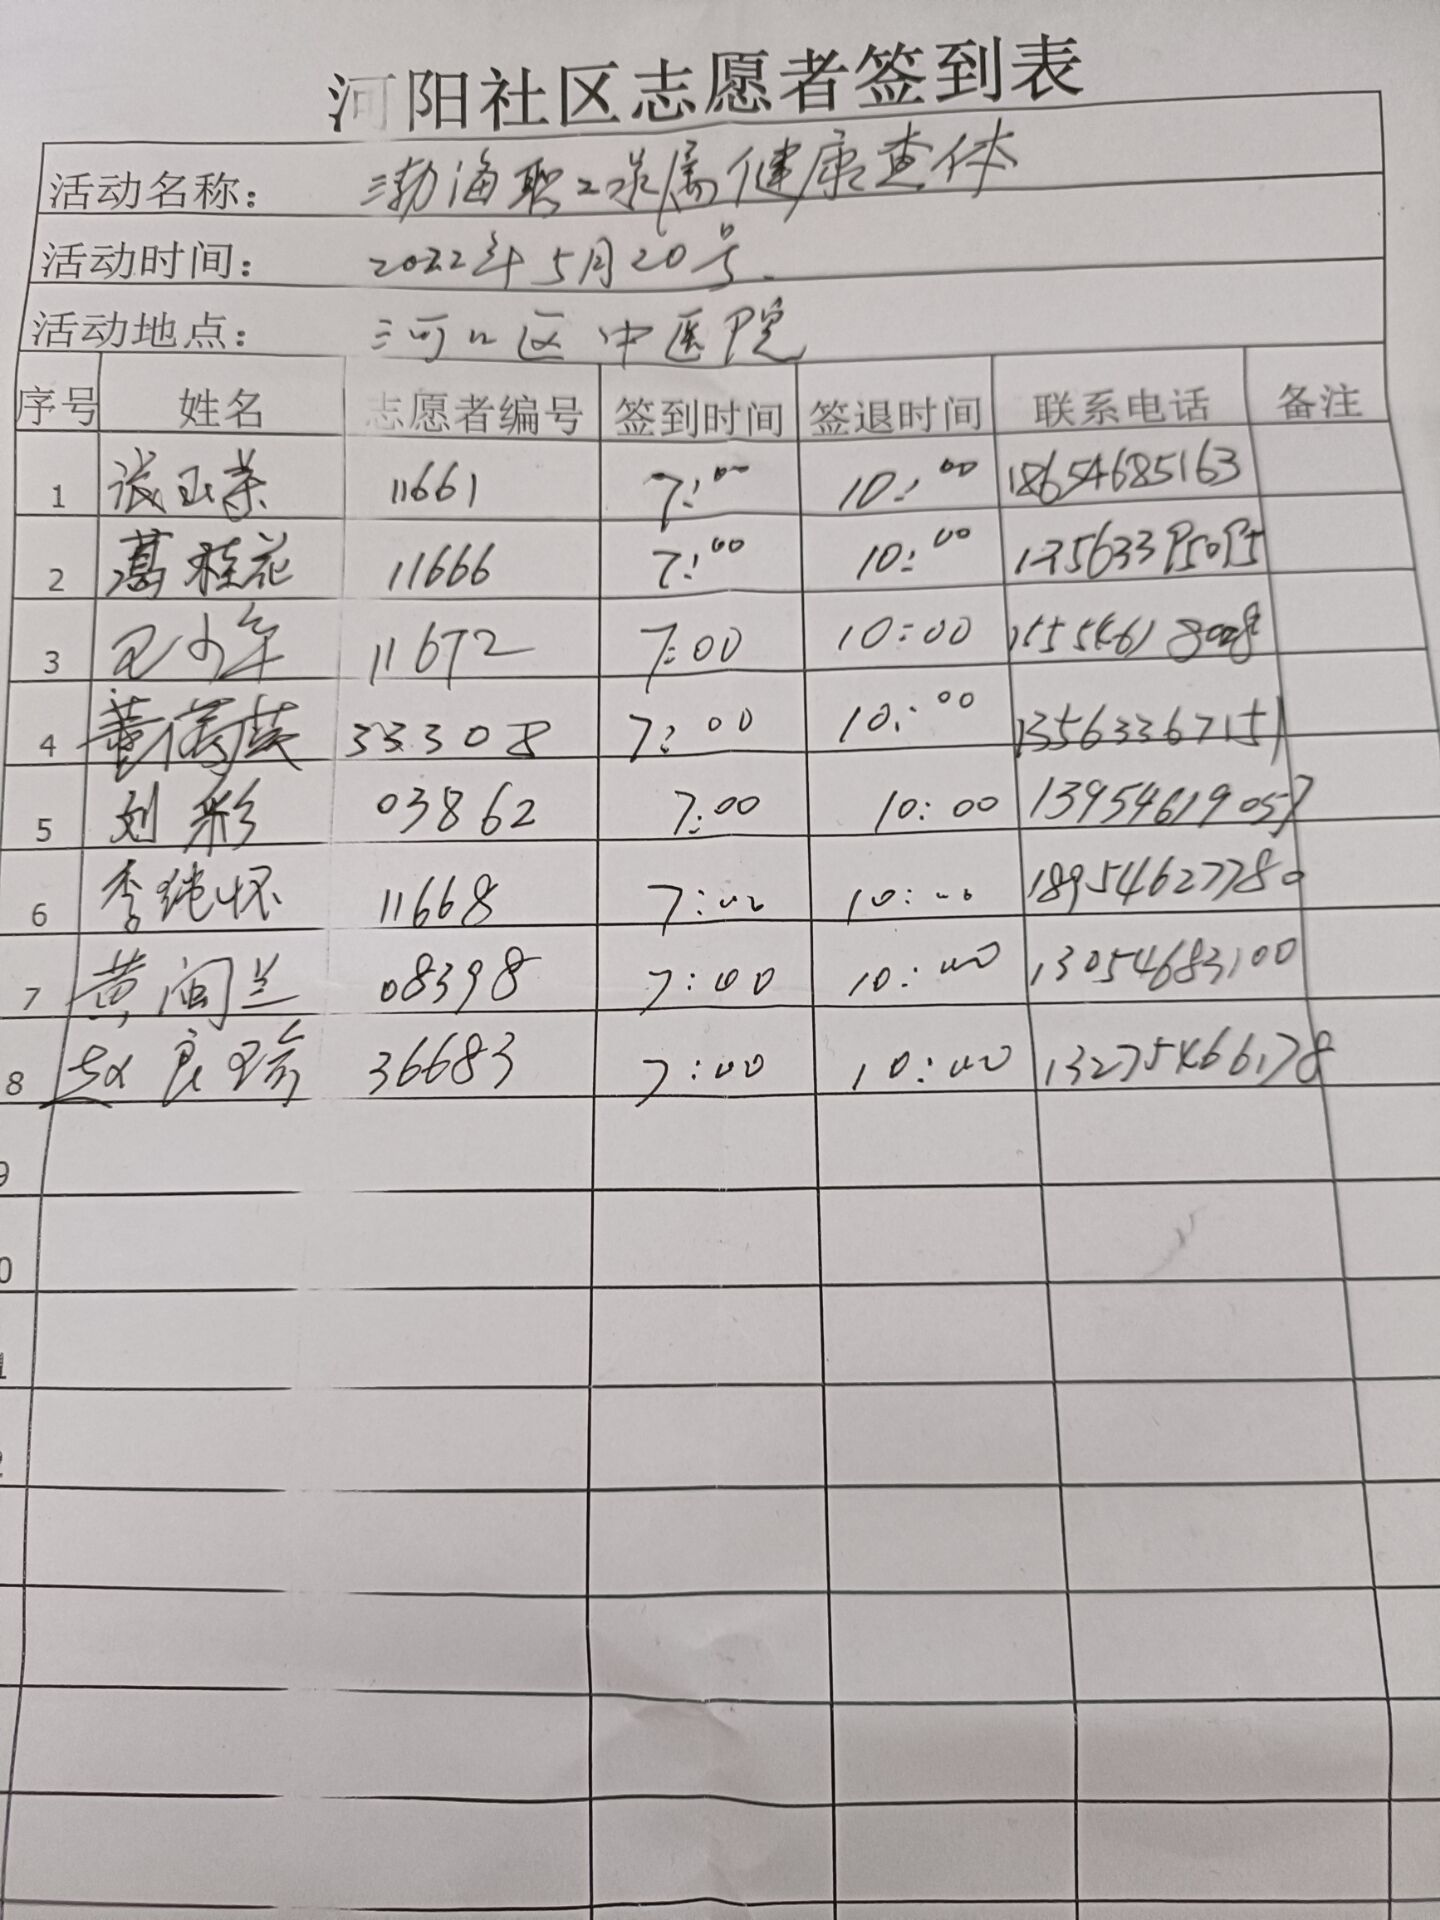 河阳社区志愿者签到表
活动名称： 渤海职工家属健康查体
活动时间： 2022年5月20号.
活动地点： 河口区中医院
序号 姓名 志愿者编号 签到时间 签退时间 联系电话 备注
1 张玉荣 11661 7:00 10:00 18654685163
2 葛桂花 11666 7:00 10:00
3 11672 7:00 10:00
4 33308 7:00 10:00 13563367151
5 刘彩 03862 7:00 10:00 13954619057
6 李纯怀 11668 7:00 10:00 18954627780
7 黄闽兰 08398 7:00 10:00 13054683100
8 赵良瑜 36683 7:00 10:00 13275466178